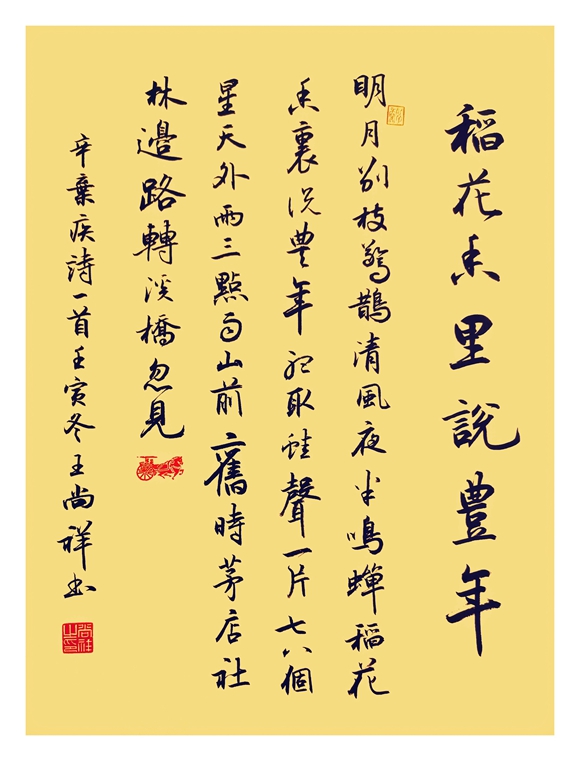 稻花香里說豊年
明月别枝驚鵲清風夜半鳴蟬稻花
香裏说豊年聽取蛙聲一片七八個
星天外兩三點雨山前舊時茅店社
林邊路轉溪橋忽見
辛棄疾詩一首壬寅冬王尚祥書
尚祥之印